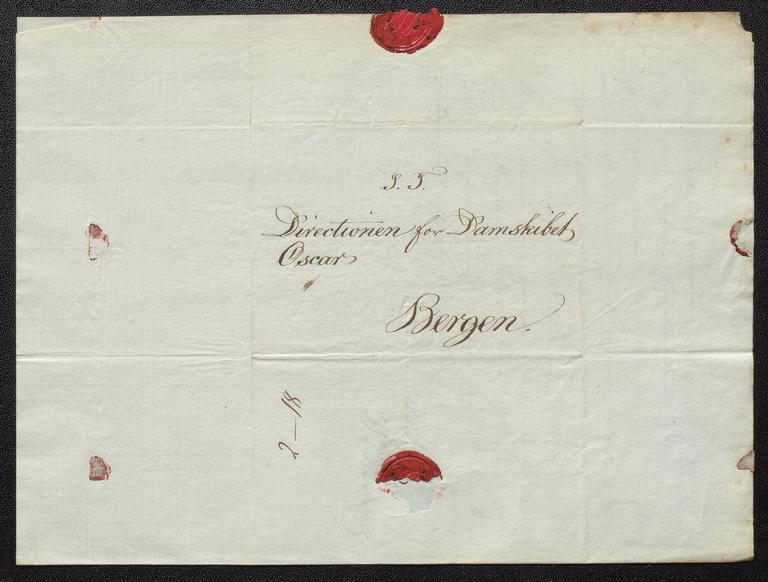 S. T.
Directionen for Damskibet
Oscar
Bergen.
2-18